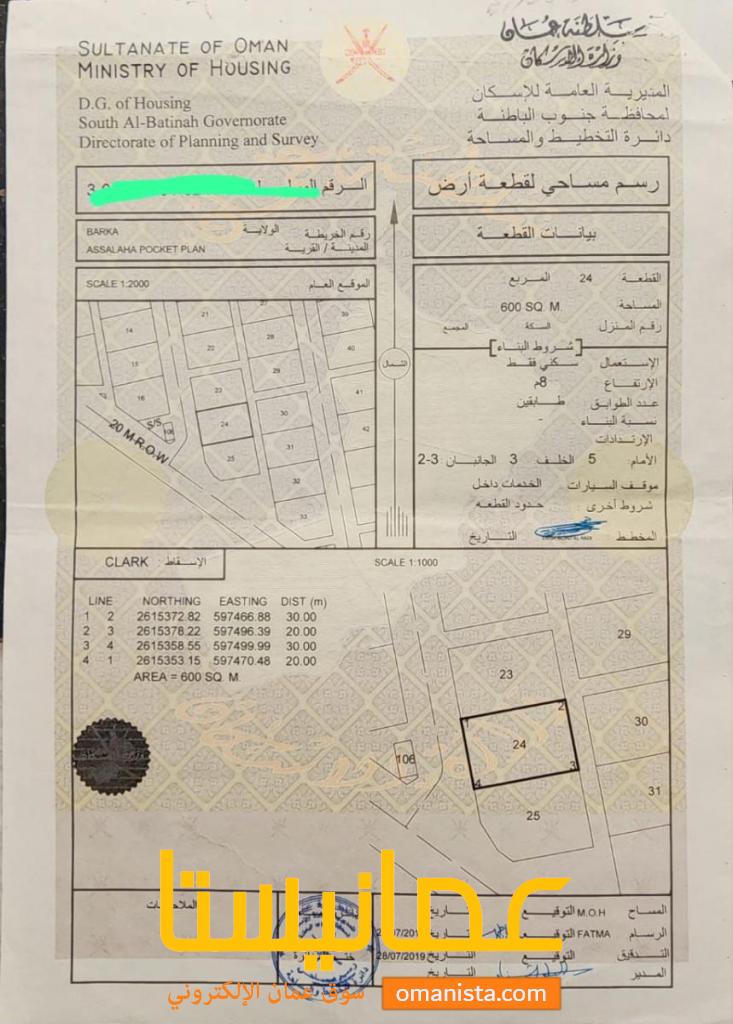 SULTANATE OF OMAN
MINISTRY OF HOUSING
سلطنة عمان
وزارة الإسكان
D.G. of Housing
South Al-Batinah Governorate
Directorate of Planning and Survey
المديرية العامة للإسكان
لمحافظة جنوب الباطنة
دائرة التخطيط والمساحة
الرقم
رسم مساحي لقطعة أرض
BARKA الولاية رقم الخريطة
ASSALAHA POCKET PLAN المدينة / القرية
بيانات القطعة
SCALE 1:2000 الموقع العام
القطعة 24 المربع
المساحة 600 SQ. M.
رقم المنزل السكة المجمع
شروط البناء
الإستعمال سكني فقط
الإرتفاع 8م
عدد الطوابق طابقين
نسبة البناء -
الإرتدادات
الأمام: 5 الخلف 3 الجانبان 2-3
موقف السيارات الخدمات داخل
شروط أخرى: حدود القطعه
المخطط التاريخ
الشمال
14
15
16
21
22
23
24
25
28
29
30
31
32
33
39
40
41
42
S/S
106
20 M.R.O.W
CLARK الإسقاط :
SCALE 1:1000
LINE NORTHING EASTING DIST (m)
1 2 2615372.82 597466.88 30.00
2 3 2615378.22 597496.39 20.00
3 4 2615358.55 597499.99 30.00
4 1 2615353.15 597470.48 20.00
AREA = 600 SQ. M.
23
29
1
2
24
30
3
4
106
31
25
الملاحظات
المساح M.O.H التوقيع التاريخ
الرسام FATMA التوقيع التاريخ
التدقيق التوقيع التاريخ 28/07/2019
المدير التاريخ
عمانيستا
سوق عمان الإلكتروني
omanista.com